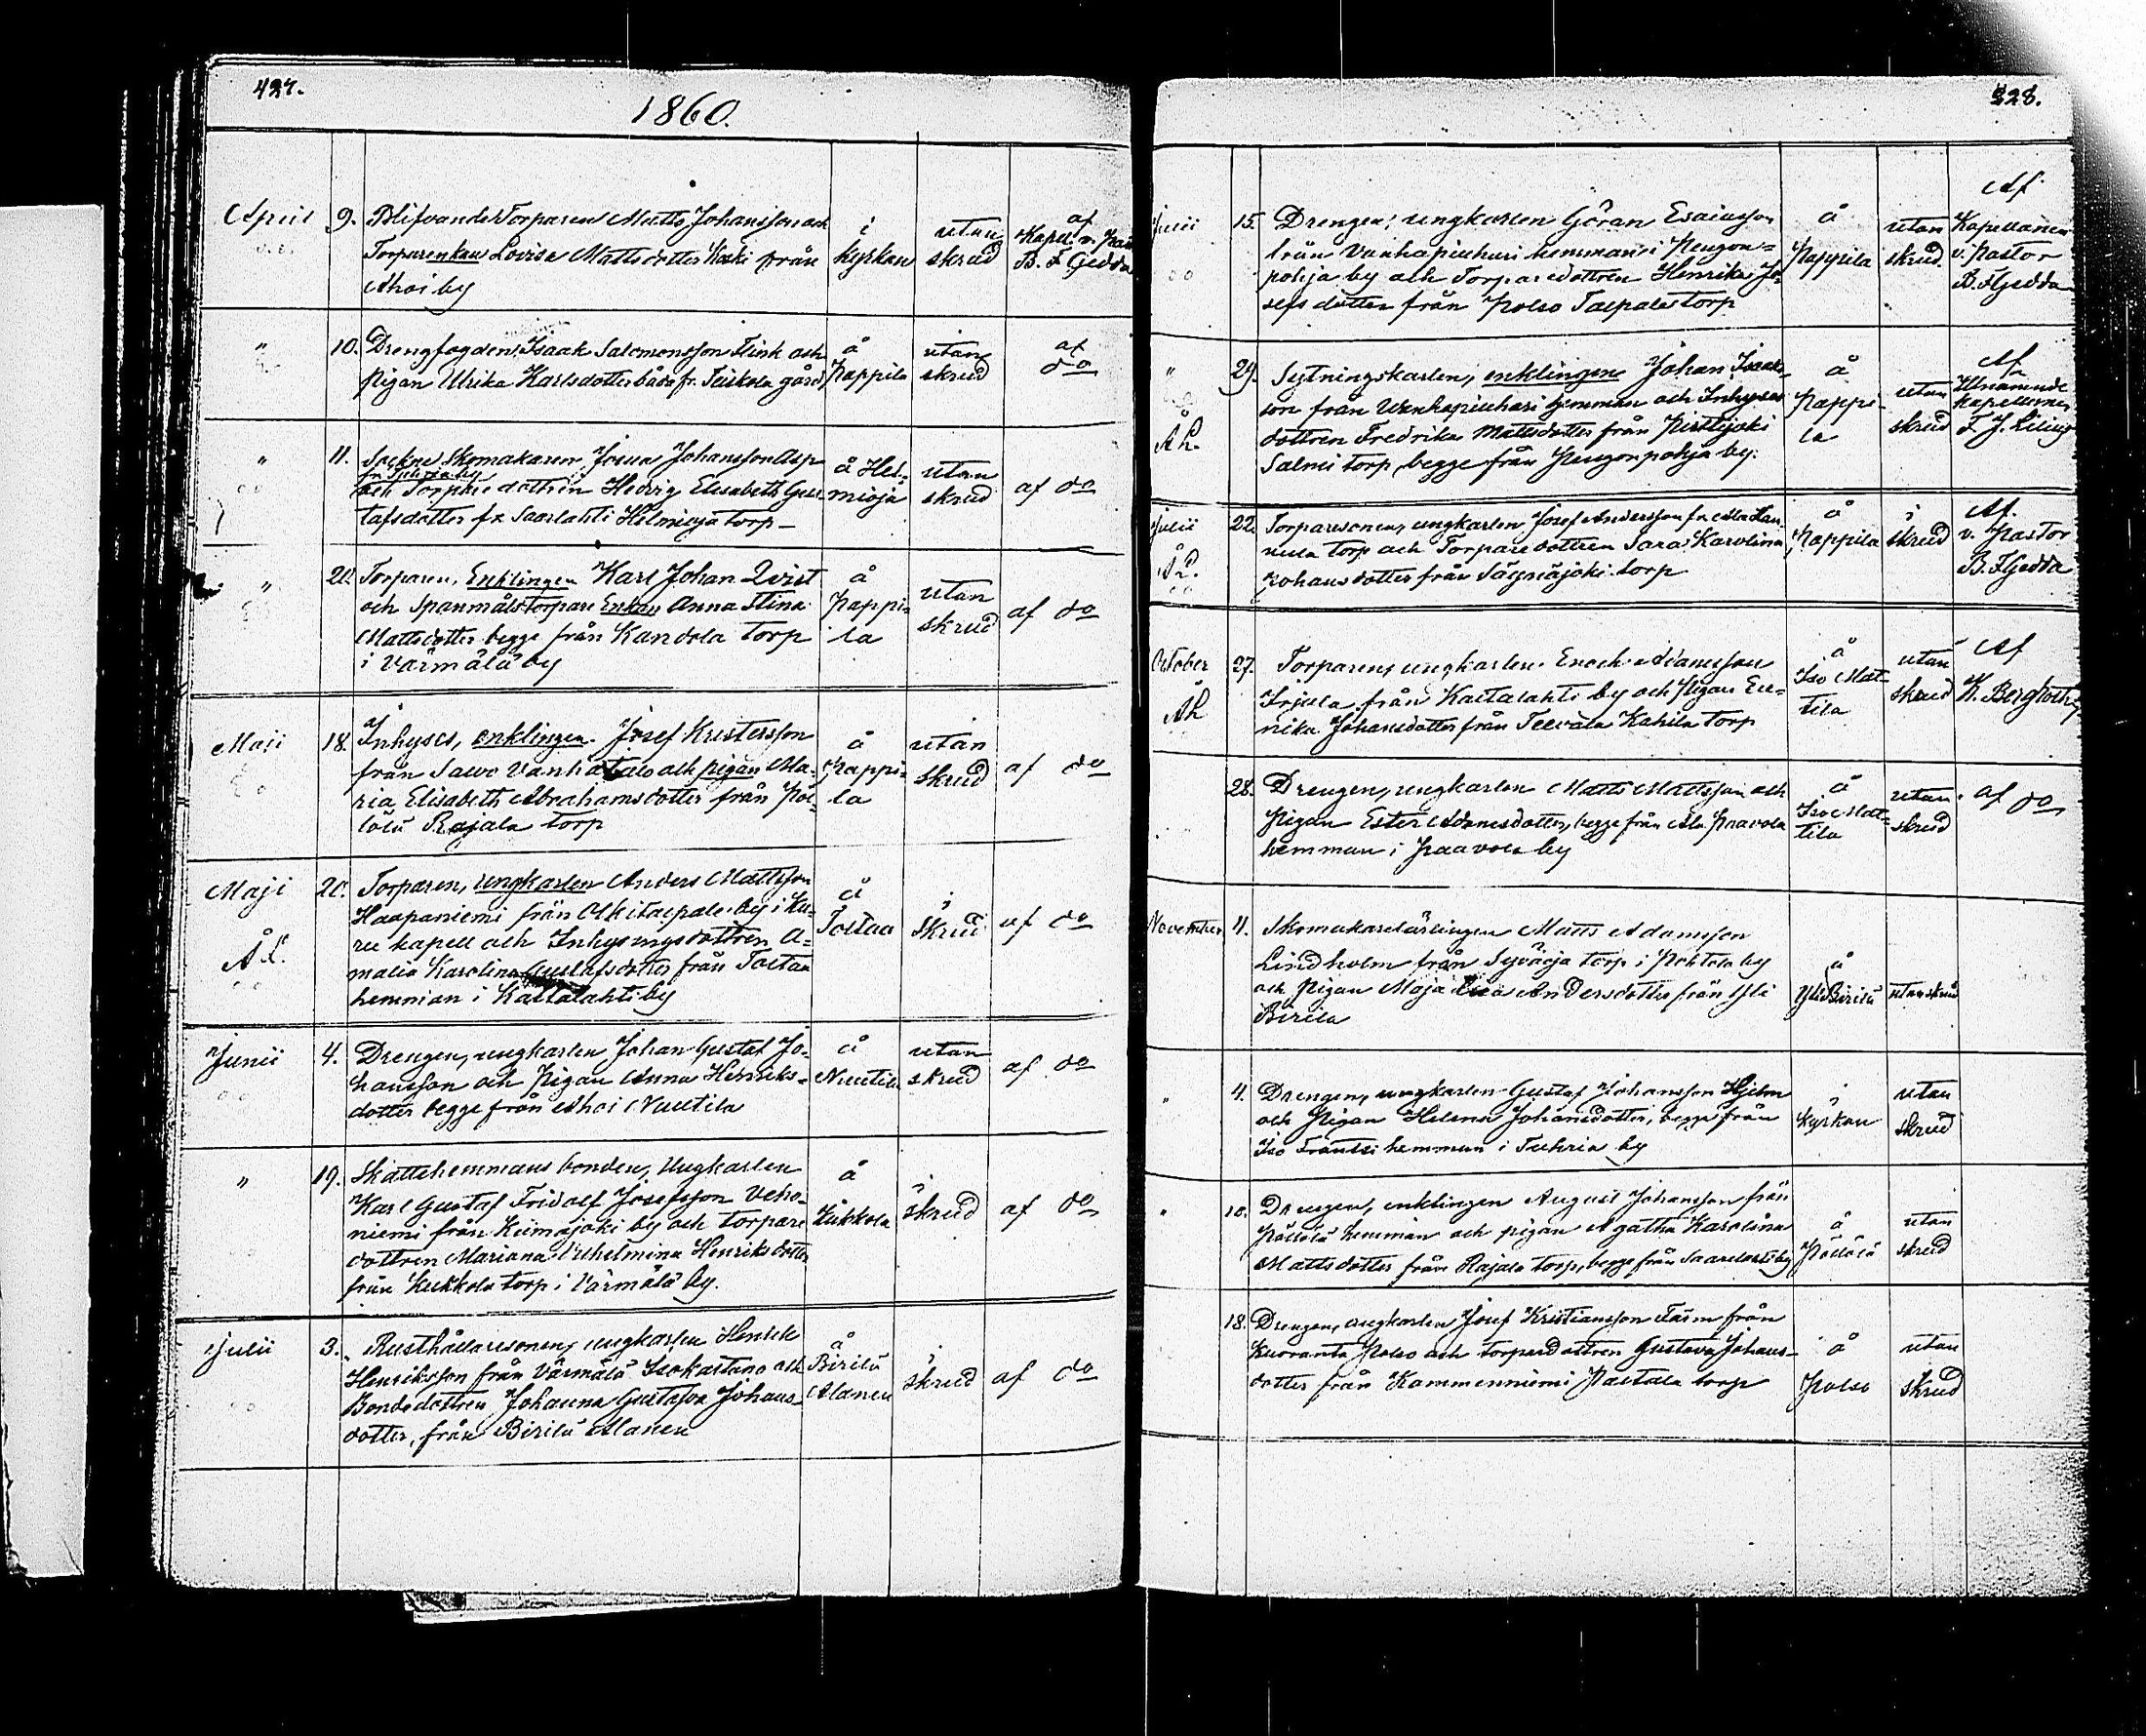 427.
1860.
April 9. Blifvande Torparen Matts Johansson och
Torpareenkan Lovisa Mattsdotter Koski från
Ahoi by
i
kyrkan
utan
skrud
af
Kapell. v. Past
B. F Gjedda
" 10. Drengfogden, Isaak Salomonsson Flink och
pigan Ulrika Karlsdotter båda fr. Teiskola gård
å
Pappila
utan
skrud
af
do
" 11. Sockne Skomakaren Josua Johansson Asp
och Torparedottren Hedvig Elisabeth Gus-
tafsdotter fr. Saarlahti Helmioja torp
å Hel-
mioja
utan
skrud
af do
" 20. Torparen, Enklingen Karl Johan Qvist
och Spanmåls torpare Enkan Anna Stina
Mattsdotter begge från Kandola torp
i Värmälä by
å
Pappi-
la
utan
skrud
af do
Maji 18. Inhyses, enklingen Josef Kristersson
från Savo Vanhatalo och pigan Ma-
ria Elisabeth Abrahamsdotter från Pöl-
lölä Rajala torp
å
Pappi-
la
utan
skrud
af do
Maji 20. Torparen, ungkarlen Anders Mattsson
Haapaniemi från Olkitaipale by i Ku-
ru kapell och Inhysingsdottren A-
malia Karolina Gustafsdotter från Toltaa
hemman i Kaitalahti by
Å L.
å
Toltaa
i
skrud
af do
Junii 4. Drengen, ungkarlen Johan Gustaf Jo-
hansson och Pigan Anna Henriks-
dotter begge från Ahoi Nuutila
å
Nuutila
utan
skrud
af do
" 19. Skattehemmans bonden, Ungkarlen
Karl Gustaf Fridolf Josefsson Veho-
niemi från Keimäjoki by och torpare
dottren Mariana Vilhelmina Henriksdotter
från Kukkola torp i Värmälä by.
å
Kukkola
i
skrud
af do
Julii 3. Rusthållaresonen, ungkarlen Henrik
Henriksson från Värmälä Isokartano och
Bondedottren Johanna Gustafva Johans-
dotter, från Birilä Alanen
å
Birilä
Alanen
i
skrud
af do
328.
Junii 15. Drengen, ungkarlen Göran Esaiasson
från Vanhapiuhari hemman i Pengon-
pohja by och Torparedottren Henrika Jo-
sefsdotter från Polso Taipale torp
å
Pappila
utan
skrud
Af
Kapellanen
v. Pastor
B. F Gjedda
" 29. Sytningskarlen, enklingen Johan Isaaks-
son från Wanhapiuhari hemman och Inhyses
dottren Fredrika Mattsdotter från Pirttijoki
Salmi torp, begge från Pengonpohja by.
å
Pappi-
la
utan
skrud
Af
Kapellanen
F. J. Lilius
Julii 22. Torparesonen, ungkarlen Josef Andersson fr. Ala Han-
nula torp och Torparedottren Sara Karolina
Johansdotter från Säynäjoki torp
Å L.
å
Pappila
i
skrud
Af.
v. Pastor
B. F Gjedda
October 27. Torparen, ungkarlen Enoch Adamsson
Irjala från Kaitalahti by och Pigan Eu-
nika Johansdotter från Teevala Kahila torp
å
Iso Mat-
tila
utan
skrud
Af
28. Drengen, ungkarlen Matts Mattsson och
Pigan Ester Adamsdotter, begge från Ala Paavola
hemman i Paavola by
å
Iso Mat-
tila
utan
skrud
af do
November 11. Skomakarelärlingen Matts Adamsson
Lindholm från Syväoja torp i Pohtola by
och Pigan Maja Lisa Andersdotter från Yli
Birila
å
Yli Birilä
utan skrud
" 4. Drengen, ungkarlen Gustaf Johansson Hjelm
och Pigan Helena Johansdotter, begge från
Iso Frantsi hemman i Tuhria by
i
kyrkan
utan
skrud
" 10. Drengen, enklingen August Johansson från
Pöllölä hemman och pigan Agatha Karolina
Mattsdotter från Rajala torp, begge från Saarlahti by
å
Pöllölä
utan
skrud
18. Drengen, ungkarlen Josef Kristiansson Färm från
Kuoranta Polso och torparedottren Gustava Johans-
dotter från Kammenniemi Paltala torp
å
Polso
utan
skrud